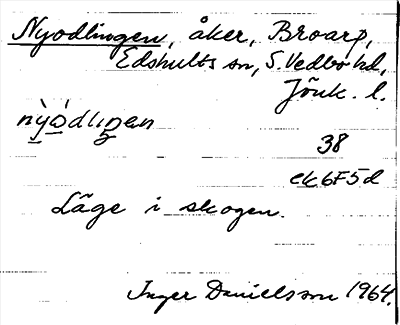 Nyodlingen, åker, Broarp,
Edshults sn, S. Vedbo hd,
Jönk. l.
nỳódlıŋen
38
ek 6F5d
Läge i skogen.
Inger Danielsson 1964.